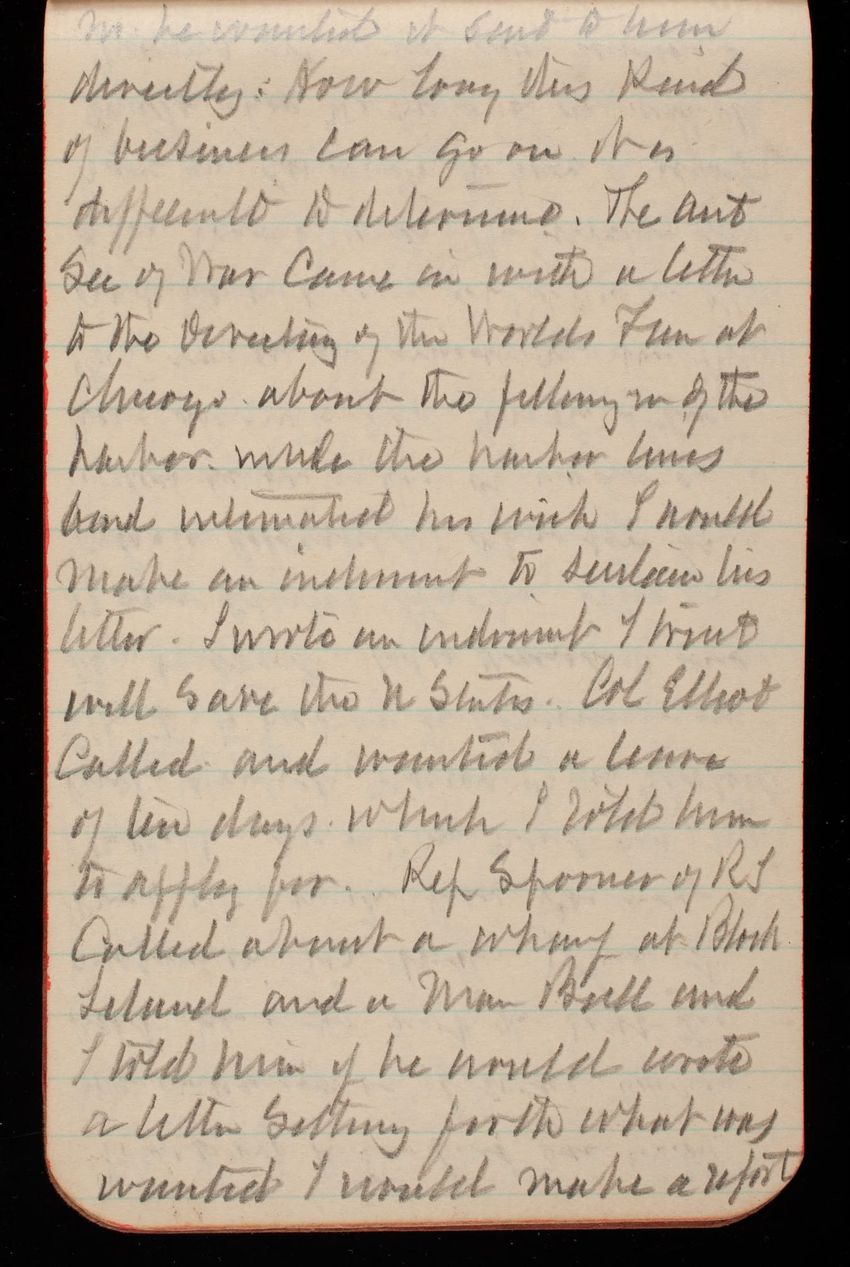 he wanted it send to him
directly: How long this Kind
of business can go on it is
difficult to determine. The asst
Sec of War Came in with a letter
to the Directing of the Worlds Fair at
Chicago about the filling in of the
harbor. inside the harbor lines
and intimated his wish I would
make an indsment to sustain his
letter. I wrote an indsment I trust
will Save the U States. Col Elliot
Called and wanted a leave
of ten days. which I told him
to apply for. Rep Spooner of R I
Called about a wharf at Block
Island and a Man Ball and
I told him if he would wrote
a letter Setting forth what was
wanted I would make a report